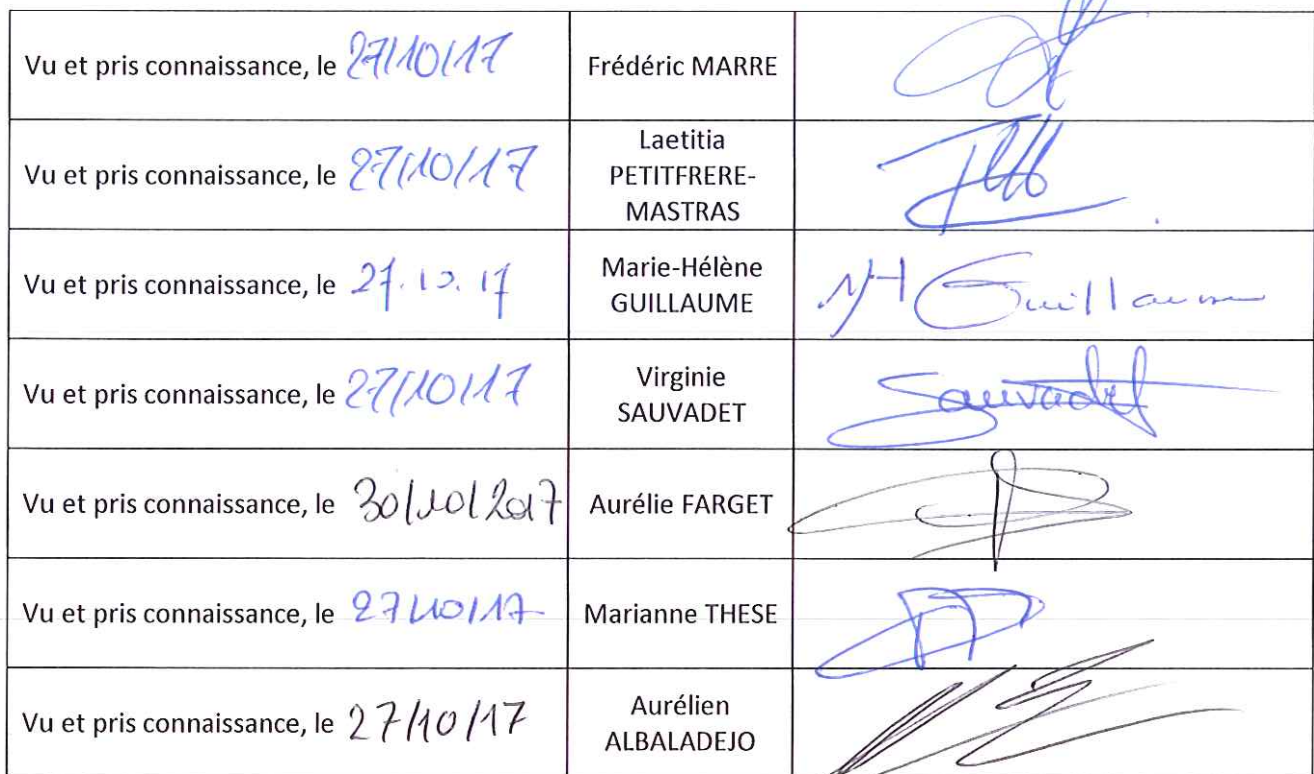 Vu et pris connaissance, le 27/10/17
Frédéric MARRE
Vu et pris connaissance, le 27/10/17
Laetitia
PETITFRERE-
MASTRAS
Vu et pris connaissance, le 27.10.17
Marie-Hélène
GUILLAUME
MH Guillaume
Vu et pris connaissance, le 27/10/17
Virginie
SAUVADET
Sauvadet
Vu et pris connaissance, le 30/10/2017
Aurélie FARGET
Vu et pris connaissance, le 27/10/17
Marianne THESE
Vu et pris connaissance, le 27/10/17
Aurélien
ALBALADEJO